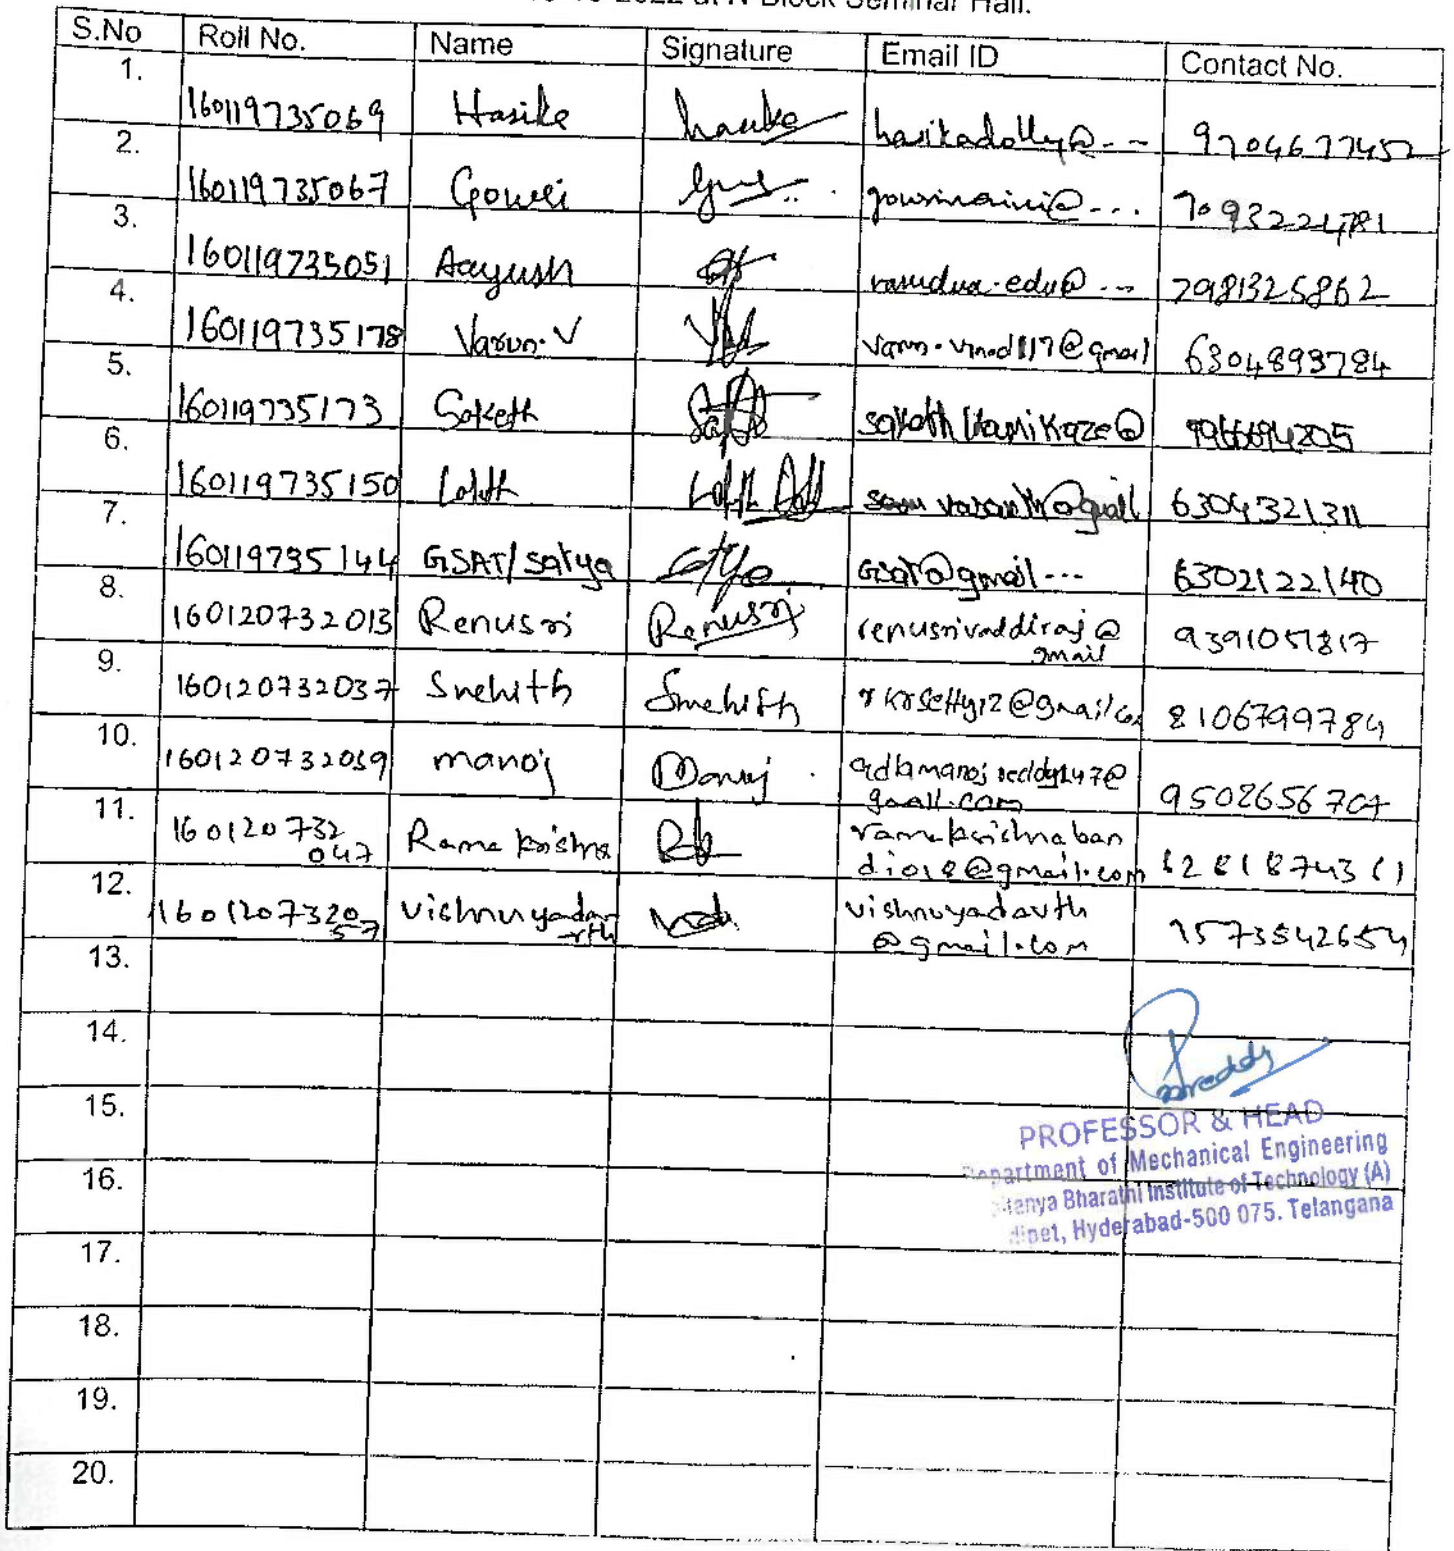 2022 at N Block Seminar Hall.
S.No Roll No. Name Signature Email ID Contact No.
1. 160119735069 Hasika hasikadolly@--- 9704677452
2. 160119735067 Gowri gowrinaini@--- 7093221781
3. 160119735051 Aayush vasudua.edu@--- 7981325862
4. 160119735178 Varun.V varun.vinod117@gmail 6304893784
5. 160119735173 Saketh
6. 160119735150 Lalith 6304321311
7. 160119735144 GSAT/satya Gsat@gmail--- 6302122140
8. 160120732013 Renusri Renusri renusrivaddiraj@
gmail 9391051817
9. 160120732037 Snehith Snehith rkrsetty12@gmail.com 8106799784
10. 160120732039 manoj Manoj adlamanojreddy147@
gmail.com 9502656704
11. 160120732
047 Rama krishna Rk ramakrishnaban
di018@gmail.com
12. 1601207320
57 vishnuyadav
rth vishnuyadavth
@gmail.com
13.
14.
reddy
15.
PROFESSOR & HEAD
Department of Mechanical Engineering
16.
tanya Bharathi Institute of Technology (A)
dipet, Hyderabad-500 075. Telangana
17.
18.
19.
20.